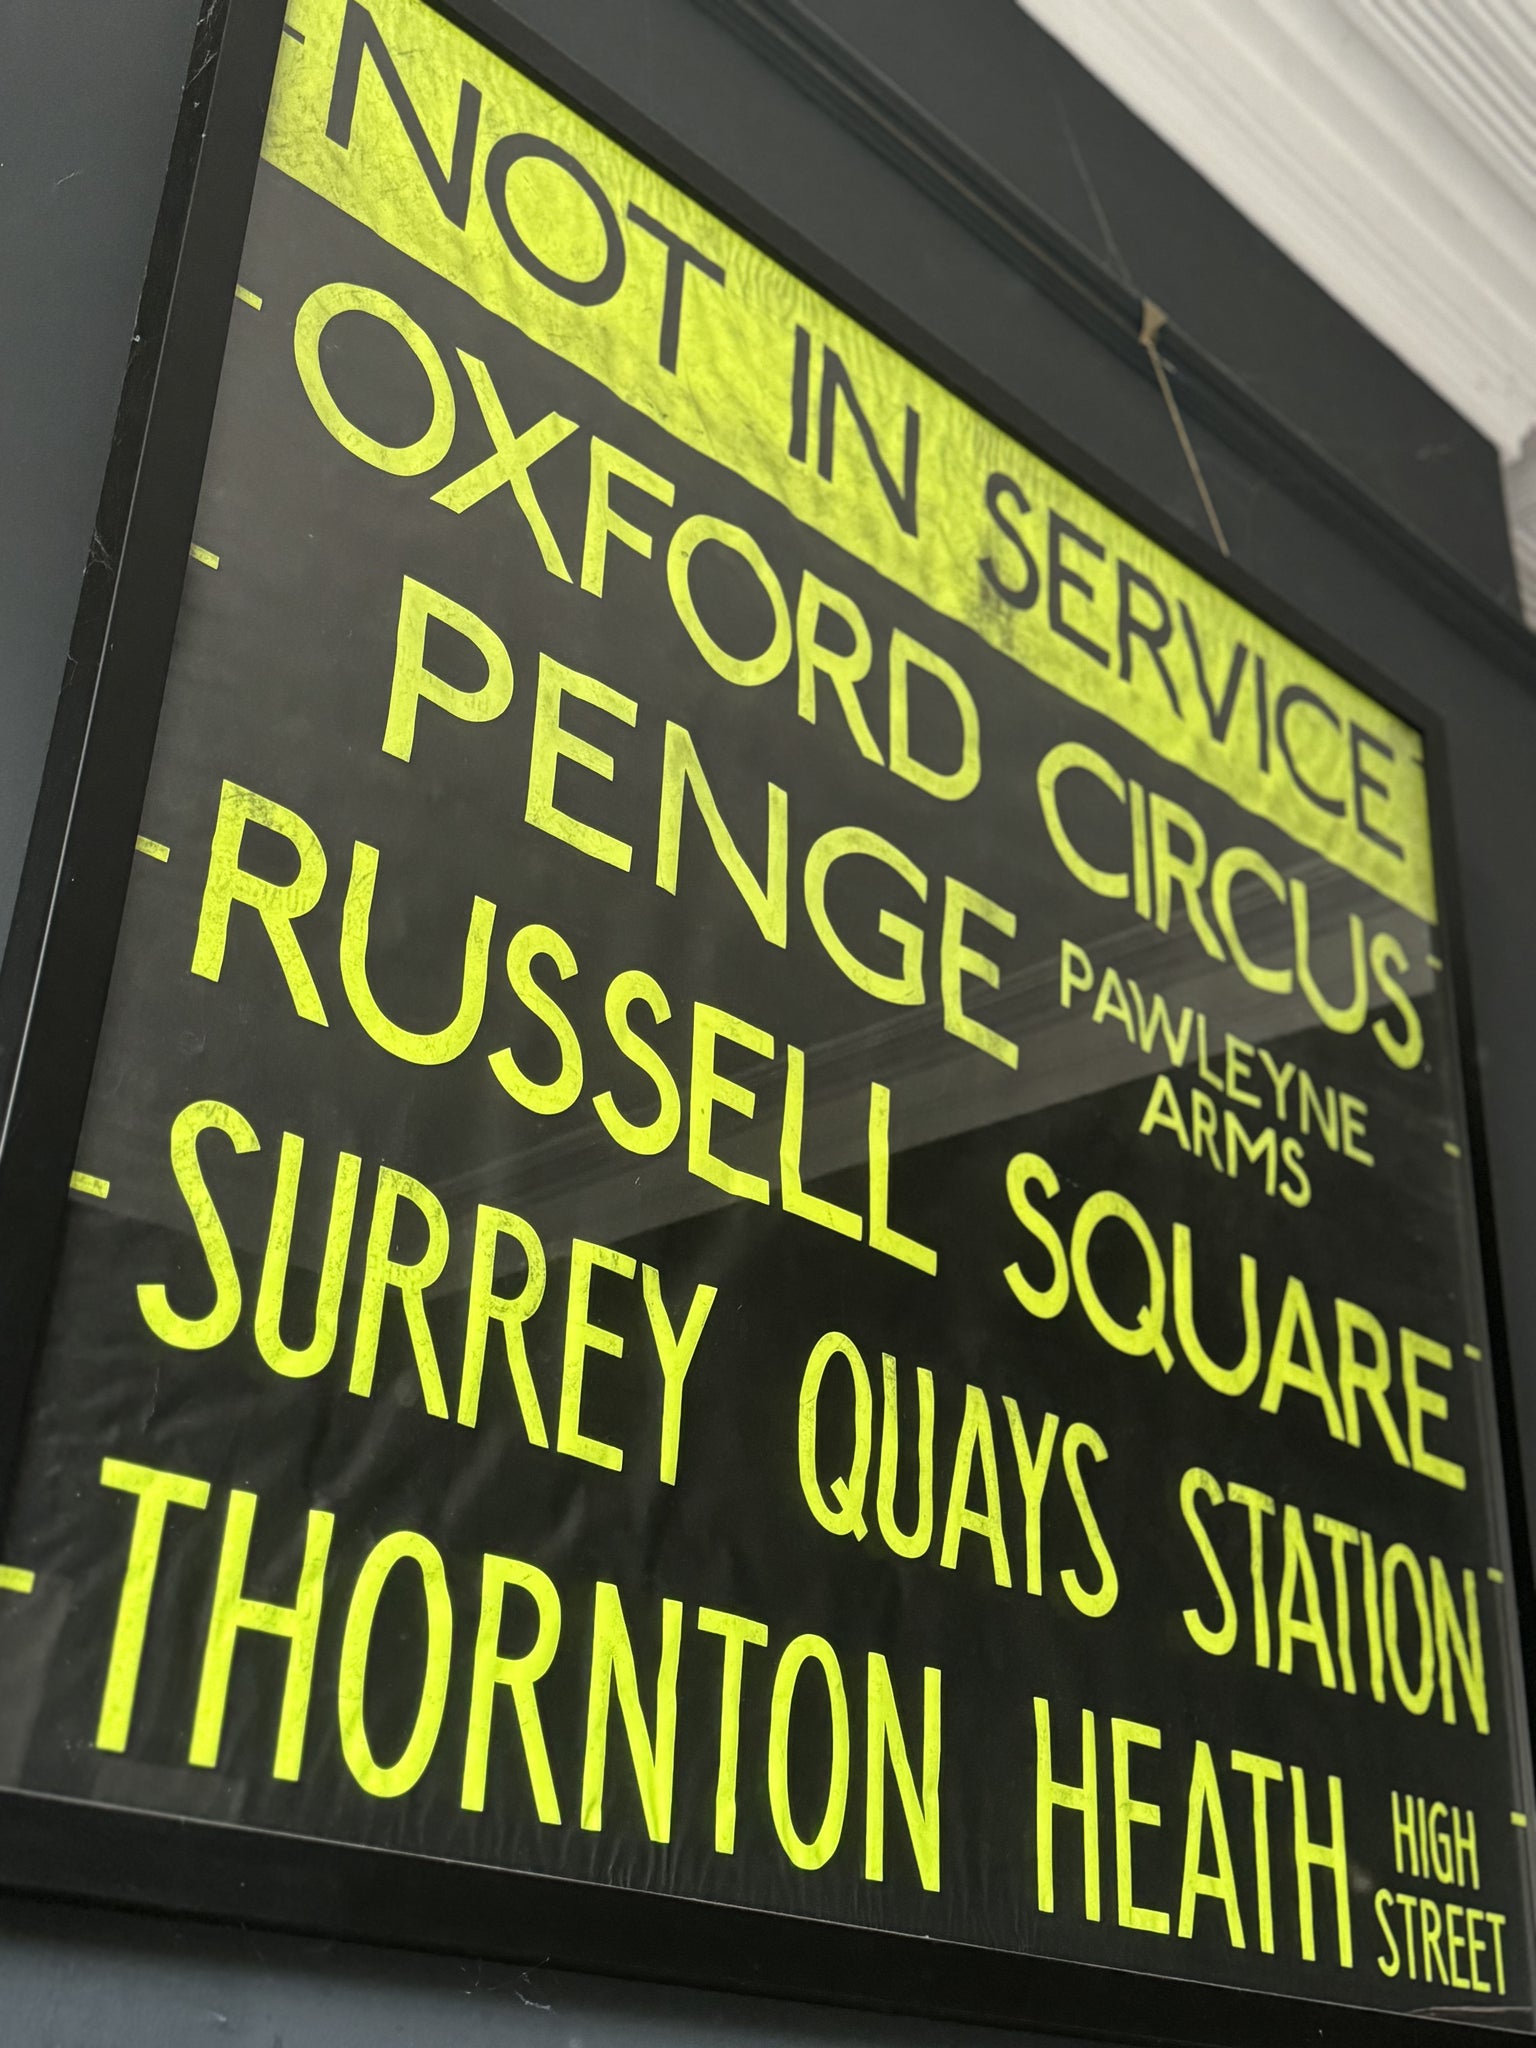 NOT IN SERVICE
OXFORD CIRCUS
PENGE PAWLEYNE
ARMS
RUSSELL SQUARE
SURREY QUAYS STATION
THORNTON HEATH HIGH
STREET